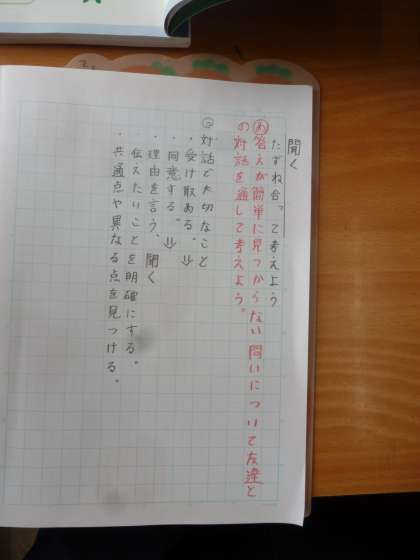 聞く
たずね合って考えよう
め答えが簡単に見つからない問いについて友達と
の対話を通して考えよう。
◎対話で大切なこと
・受け取める。⇓
・同意する。⇓
・理由を言う、聞く
・伝えたいことを明確にする。
・共通点や異なる点を見つける。